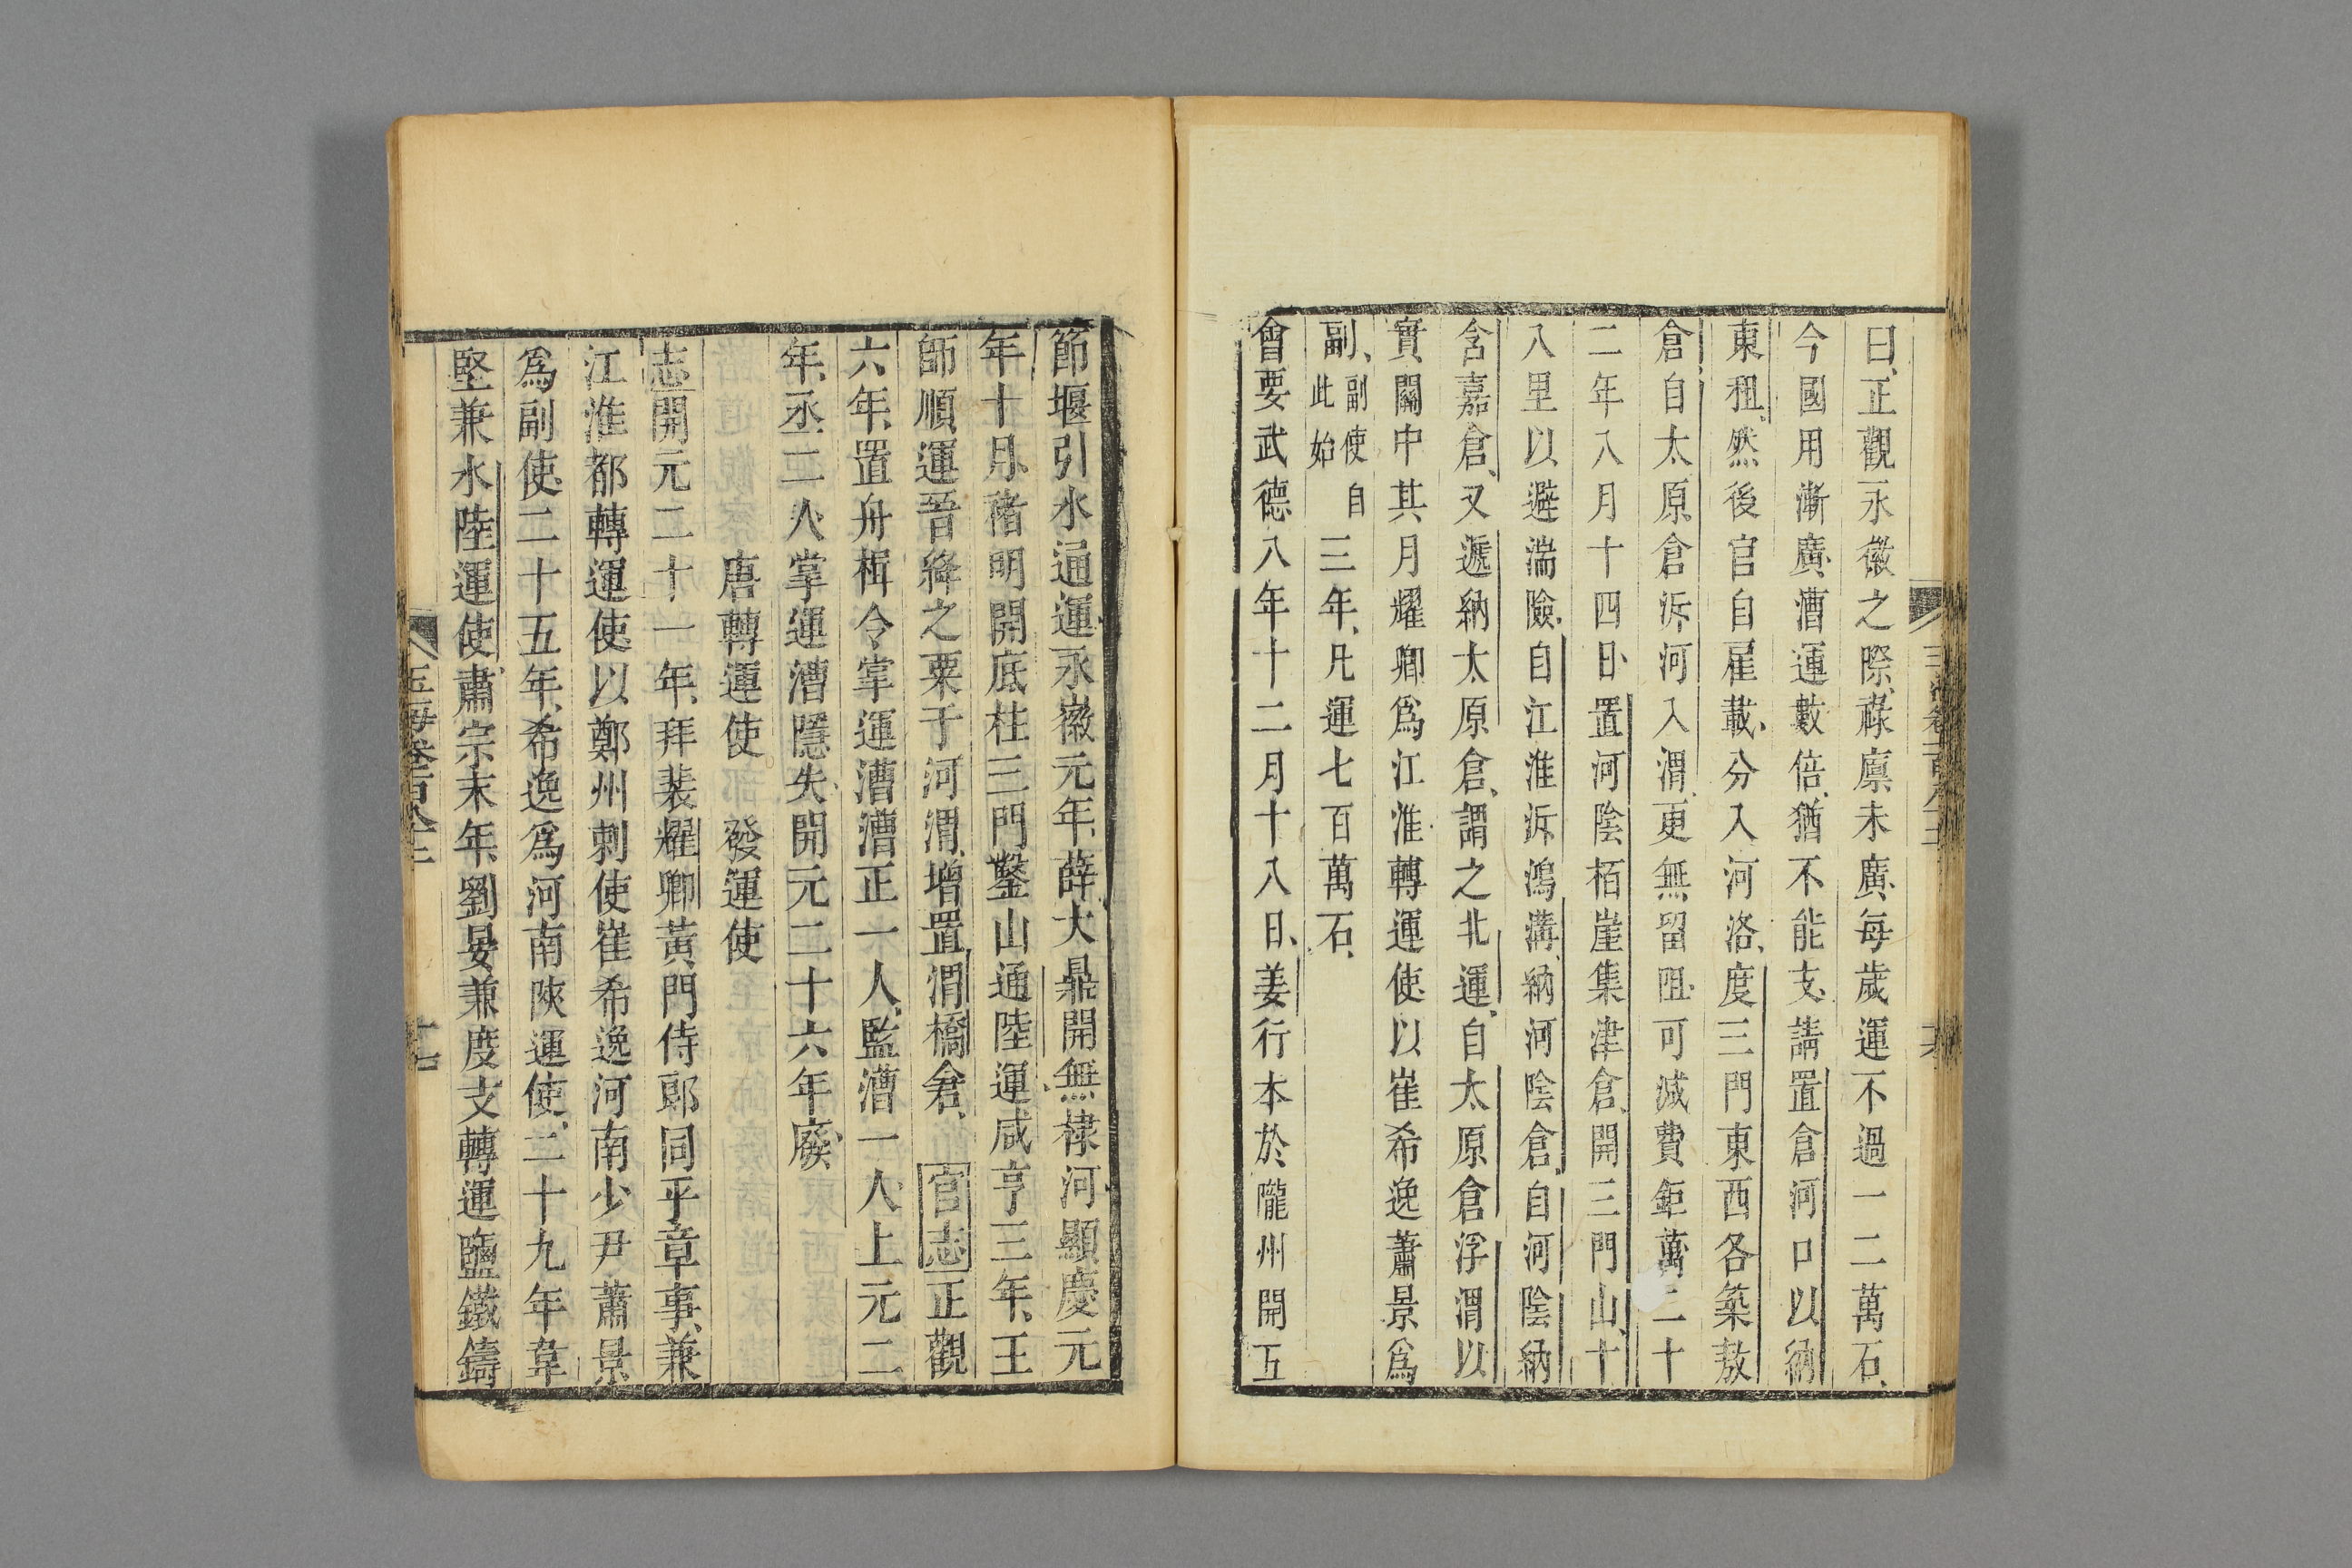 曰、正觀永徽之際、祿廪未廣、每歲運不過一二萬石、
今國用漸廣、漕運數倍、猶不能支、請置倉河口以納
東租、然後官自雇載、分入河洛、度三門東西各築敖
倉、自太原倉泝河入渭、更無留阻、可減費鉅萬、二十
二年八月十四日、置河陰栢崖集津倉、開三門山十
八里以避湍險、自江淮泝鴻溝、納河陰倉、自河陰納
含嘉倉、又遞納太原倉、謂之北運、自太原倉浮渭以
實關中、其月耀卿爲江淮轉運使、以崔希逸蕭景爲
副、副使自此始三年、凡運七百萬石、
會要武德八年十二月十八日、姜行本於隴州開五
節堰引水通運、永徽元年、薛大鼎開無棣河、顯慶元
年十月、褚明開底柱三門、鑿山通陸運、咸亨三年、王
師順運晉絳之粟于河渭、增置渭橋倉、官志正觀
六年、置舟楫令、掌運漕、漕正一人、監漕一人、上元二
年、丞二人、掌運漕隱失、開元二十六年廢、
唐轉運使 發運使
志開元二十一年、拜裴耀卿黃門侍郎同平章事、兼
江淮都轉運使、以鄭州刺使崔希逸河南少尹蕭景
爲副使、二十五年、希逸爲河南陝運使、二十九年韋
堅兼水陸運使、肅宗末年、劉晏兼度支轉運鹽鐵鑄
玉海卷百八十二
十七